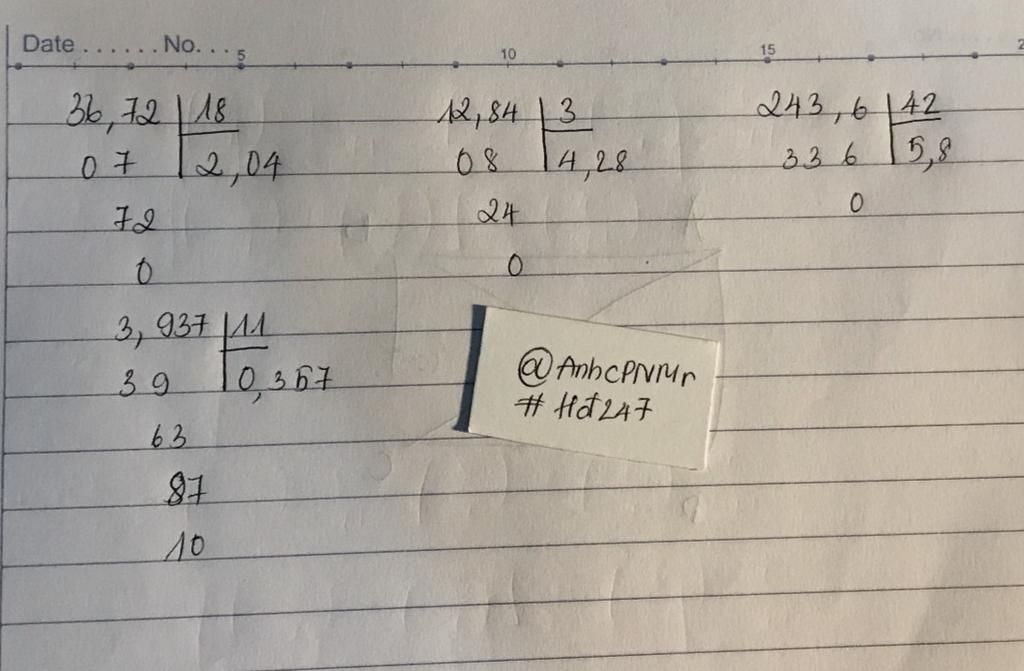 Date ...... No. ... 5 10 15 2
36,72 | 18
07 | 2,04
72
0
12,84 | 3
08 | 4,28
24
0
243,6 | 42
336 | 5,8
0
3,937 | 11
39 | 0,357
63
87
10
@AnhCPNMr
# Hot247